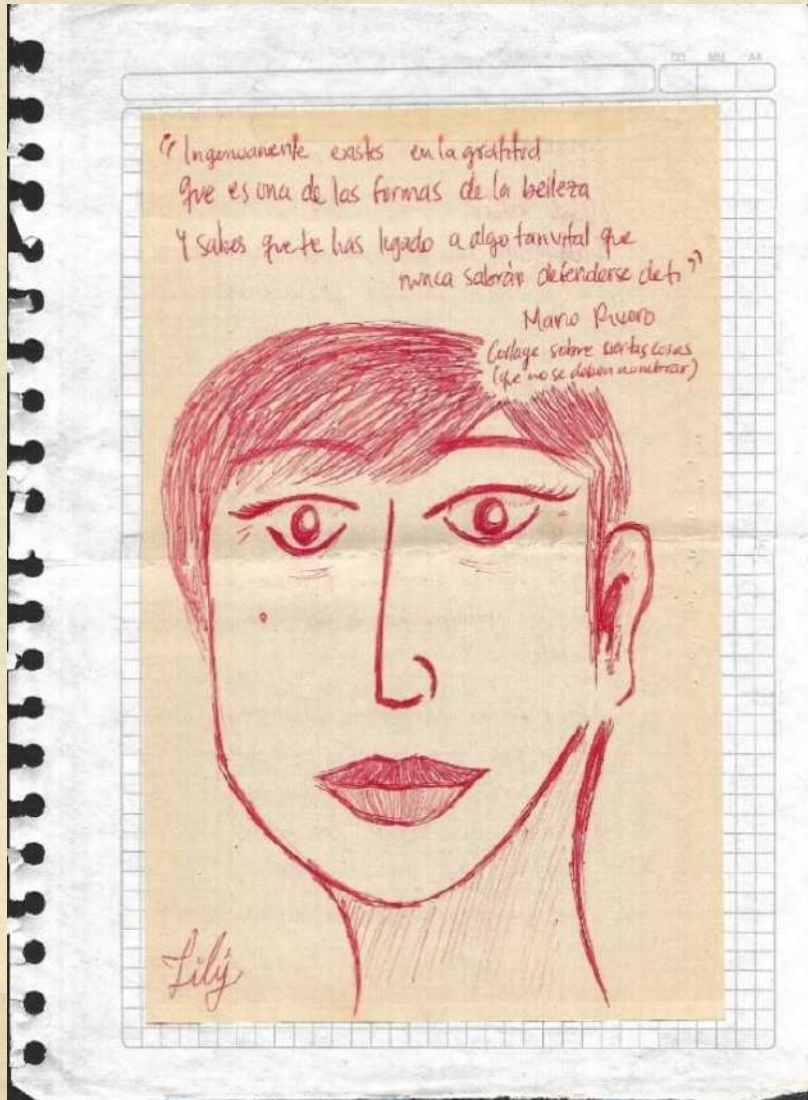 DD MM AA
"Ingenuamente existes en la gratitud
que es una de las formas de la belleza
Y sabes que te has ligado a algo tan vital que
nunca sabrán defenderse de ti"
Mario Rivero
Collage sobre ciertas cosas
(que no se deben nombrar)
Lily